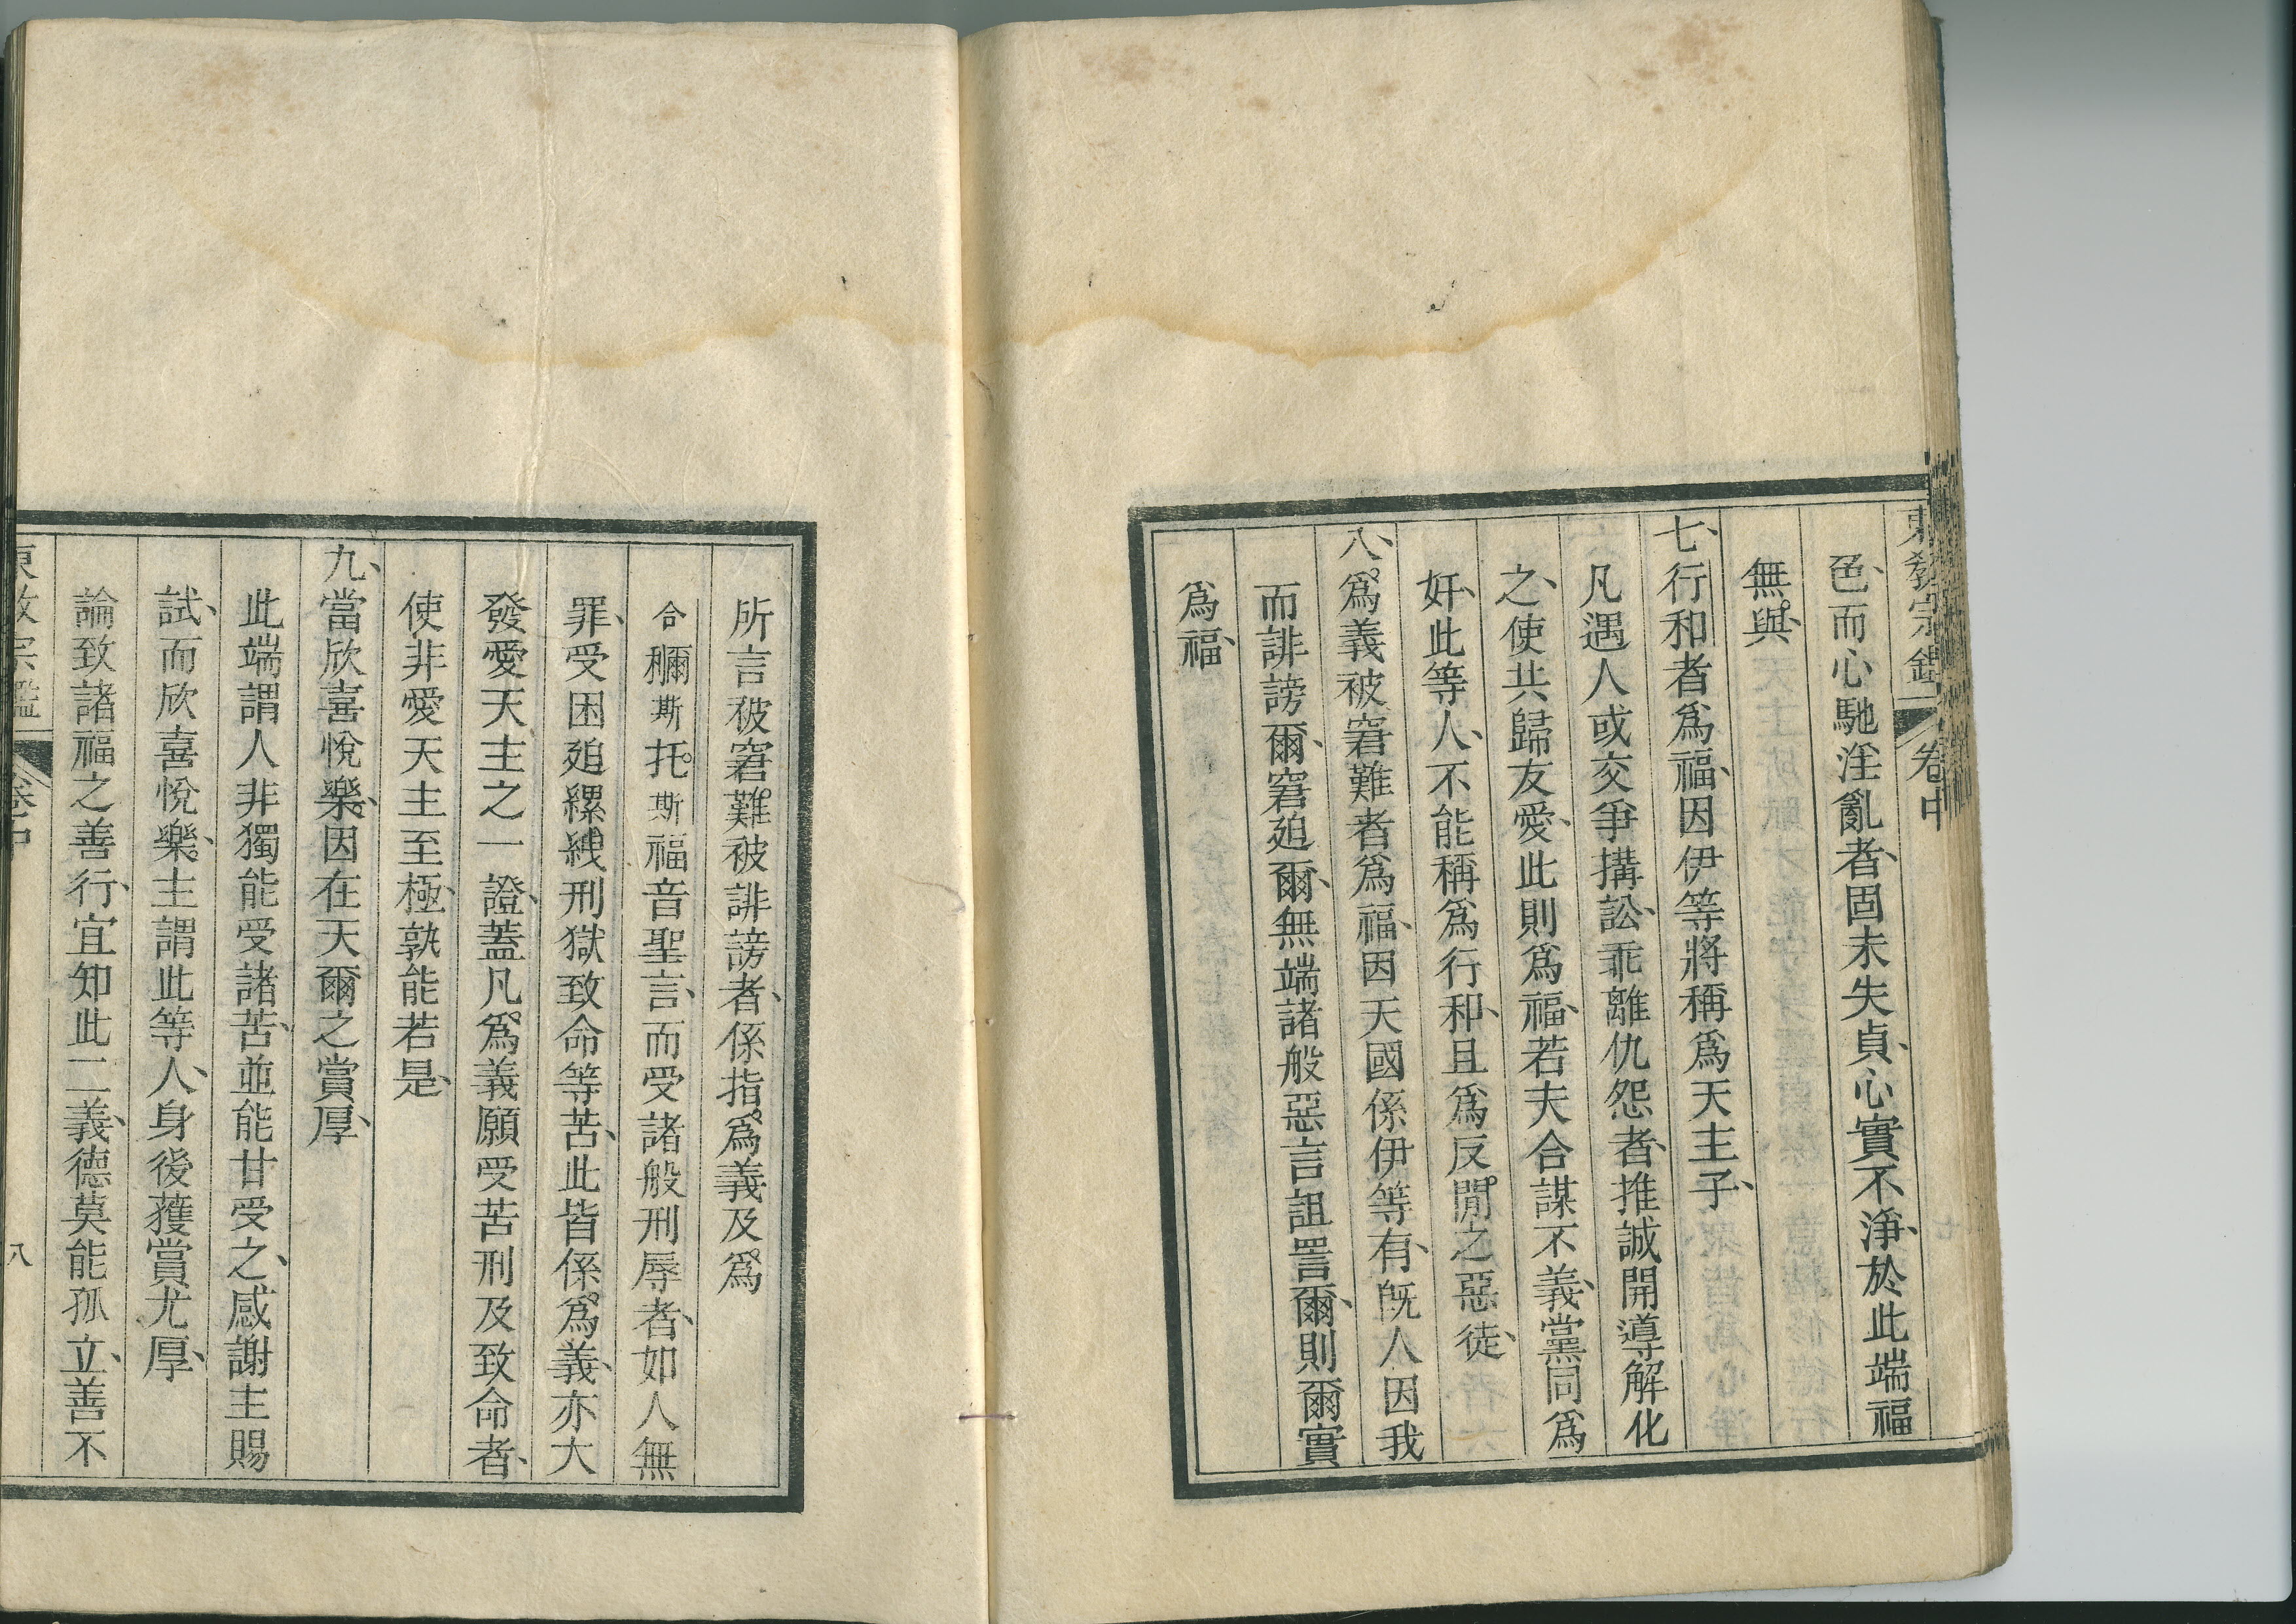 東教宗鑑 卷中
色、而心馳淫亂者、固未失貞、心實不淨、於此端福
無與、
七、行和者爲福、因伊等將稱爲天主子、
凡遇人或交爭搆訟、乖離仇怨者、推誠開導解化
之、使共歸友愛、此則爲福、若夫合謀不義、黨同爲
奸、此等人、不能稱爲行和、且爲反間之惡徒、
八、爲義被窘難者爲福、因天國係伊等有、旣人因我
而誹謗爾、窘廹爾、無端諸般惡言詛詈爾、則爾實
爲福、
所言被窘難被誹謗者、係指爲義及爲
合穪斯托斯福音聖言、而受諸般刑辱者、如人無
罪、受困廹縲絏刑獄致命等苦、此皆係爲義、亦大
發愛天主之一證、蓋凡爲義願受苦刑及致命者、
使非愛天主至極、孰能若是、
九、當欣喜悅樂、因在天爾之賞厚、
此端謂人非獨能受諸苦、並能甘受之、感謝主賜
試、而欣喜悅樂、主謂此等人、身後獲賞尤厚、
論致諸福之善行、宜知此二義、德莫能孤立、善不
東敎宗鑑 卷中 八